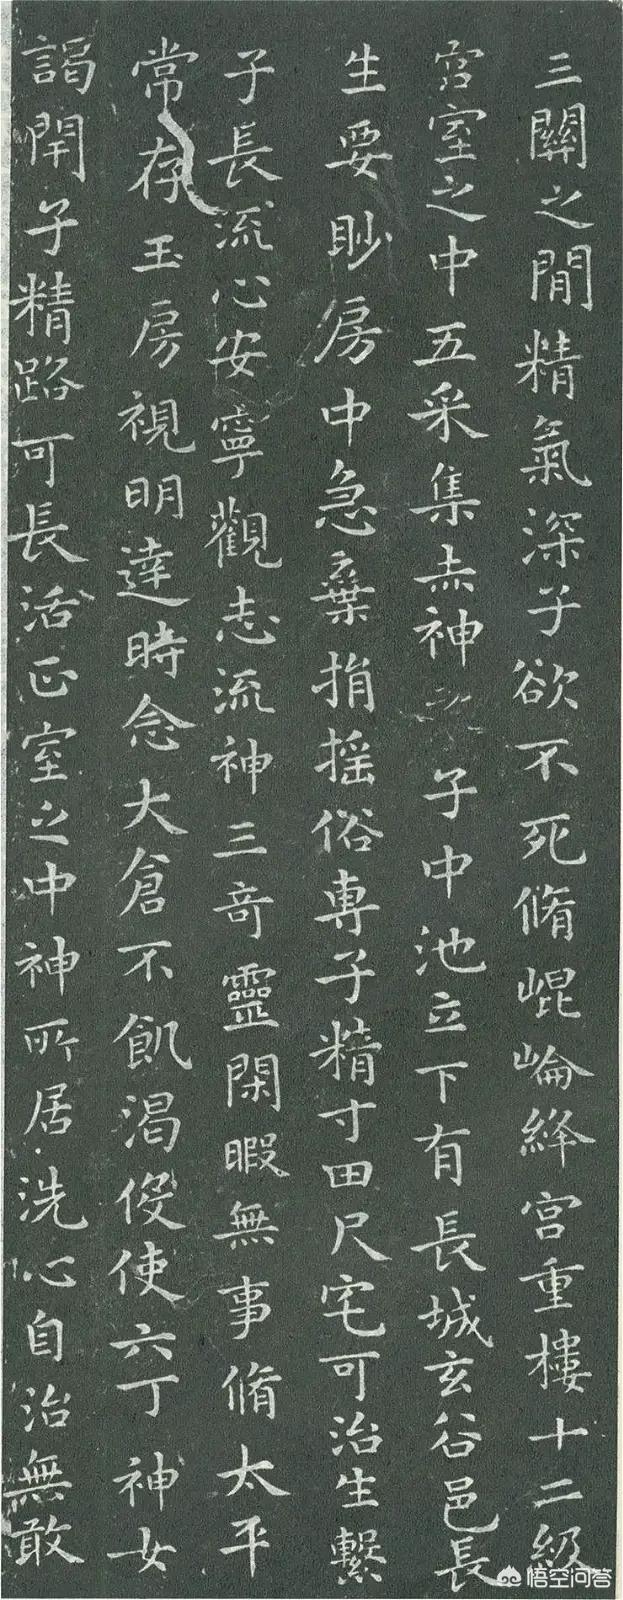 三關之閒精氣深子欲不死脩崐崘絳宮重樓十二級
宮室之中五采集赤神之子中池立下有長城玄谷邑長
生要眇房中急棄捐搖俗專子精寸田尺宅可治生繫
子長流心安寧觀志流神三奇靈閑暇無事脩太平
常存玉房視明達時念大倉不飢渴役使六丁神女
謁閇子精路可長活正室之中神所居洗心自治無敢
悟空问答